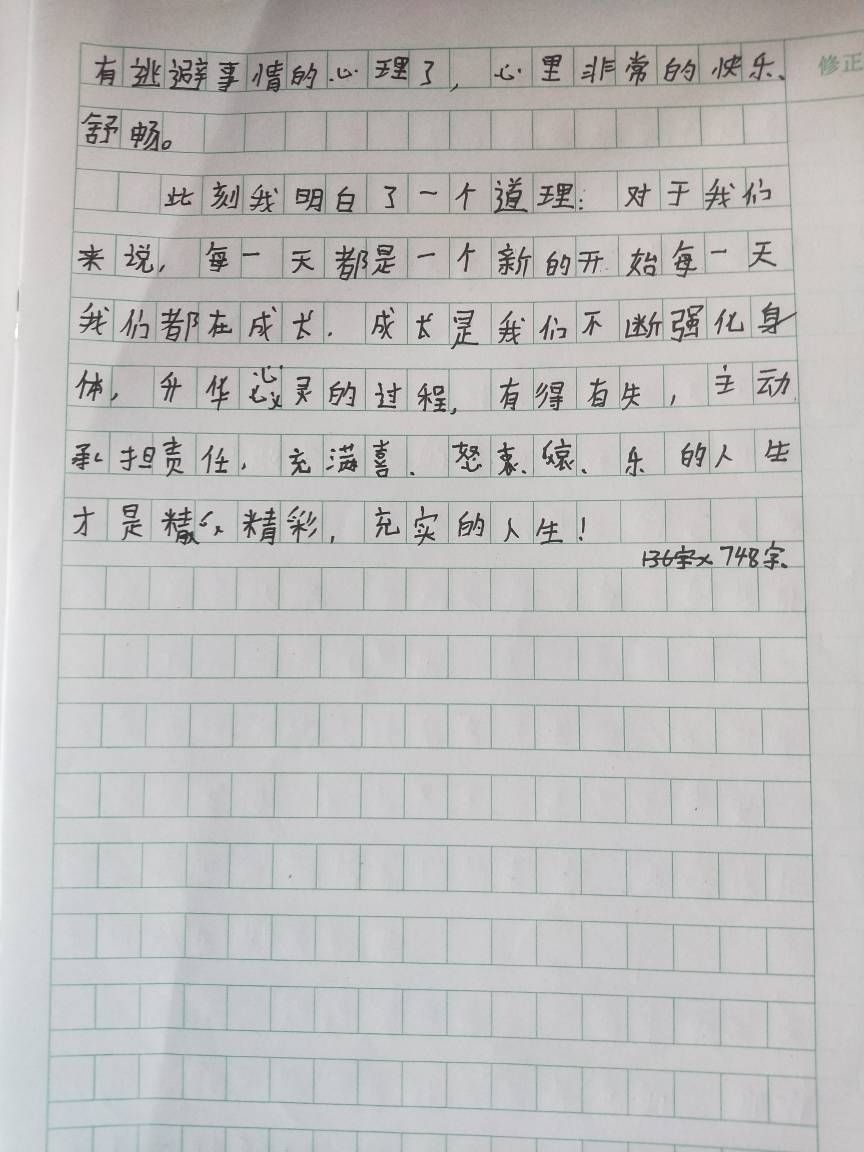 有逃避事情的心理了，心里非常的快乐、
舒畅。
此刻我明白了一个道理：对于我们
来说，每一天都是一个新的开始每一天
我们都在成长．成长是我们不断强化身
体，升华心灵的过程，有得有失，主动
承担责任，充满喜、怒哀、哀、乐的人生
才是精彩，充实的人生！
136字 748字、
修正